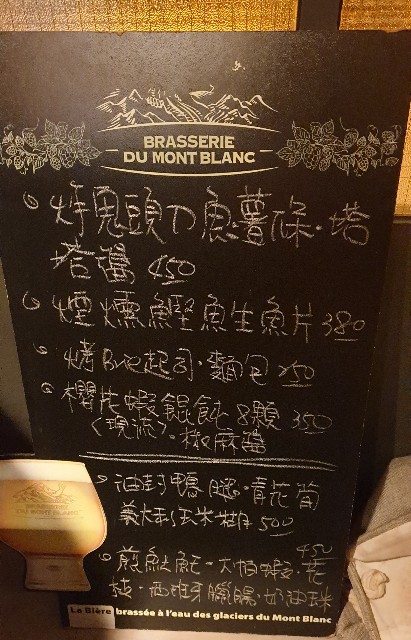 BRASSERIE
DU MONT BLANC
炸鬼頭刀魚薯條·塔
塔醬 450
煙燻鰹魚生魚片 380
烤Brie起司·麵包 250
櫻花蝦餛飩 8顆 350
(現流)·椒麻醬
油封鴨腿·青花筍
義大利玉米 500
450
煎魟魚·大柏蝦·花
枝·西班牙臘腸·奶油
BRASSERIE
DU MONT BLANC
La Bière brassée à l'eau des glaciers du Mont Blanc